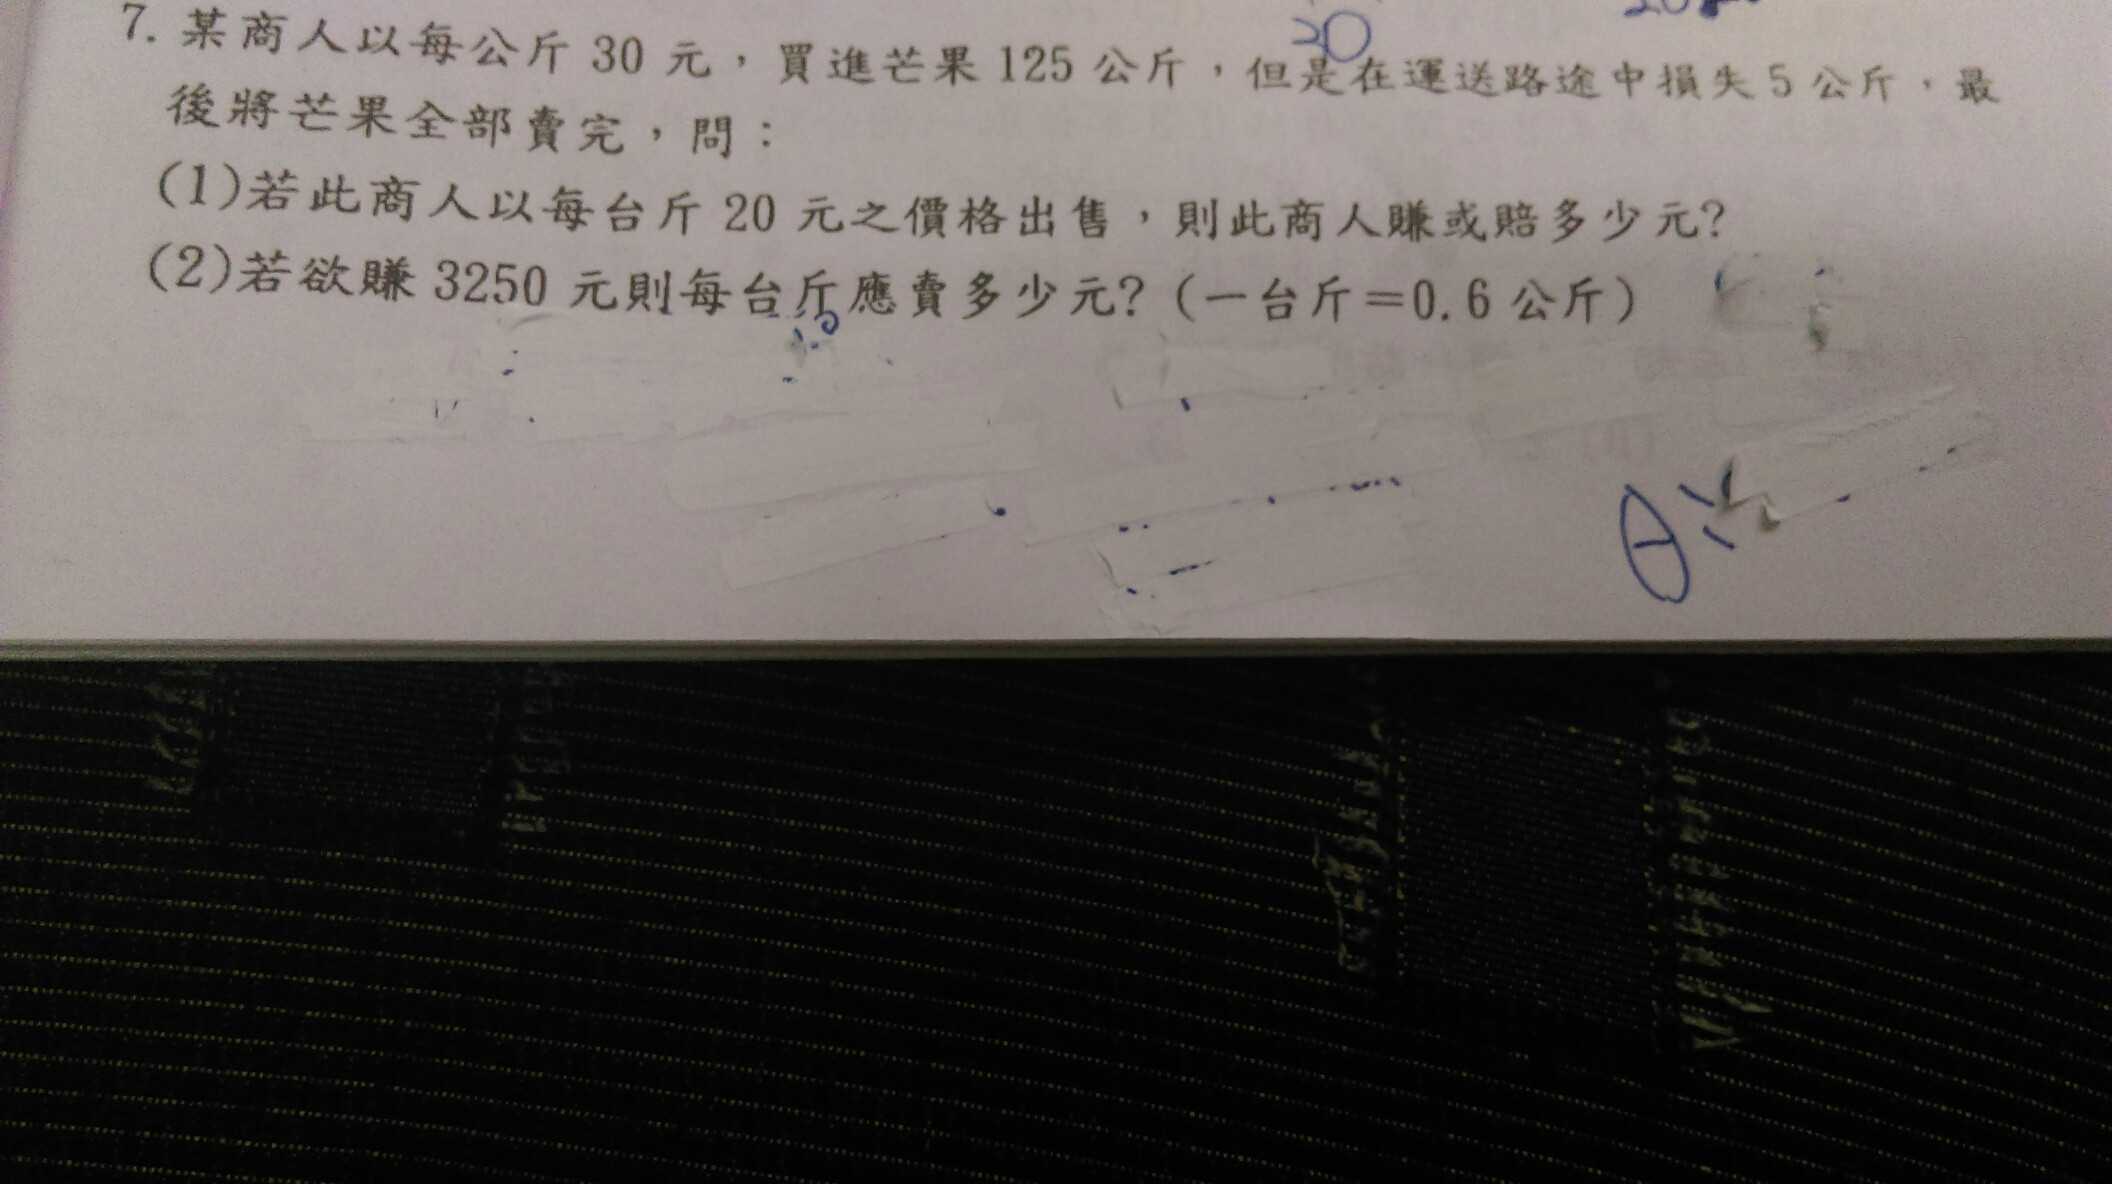 20
30
7. 某商人以每公斤 30 元，買進芒果 125 公斤，但是在運送路途中損失 5 公斤，最
後將芒果全部賣完，問：
(1)若此商人以每台斤 20 元之價格出售，則此商人賺或賠多少元?
(2)若欲賺 3250 元則每台斤應賣多少元? (一台斤=0.6 公斤)